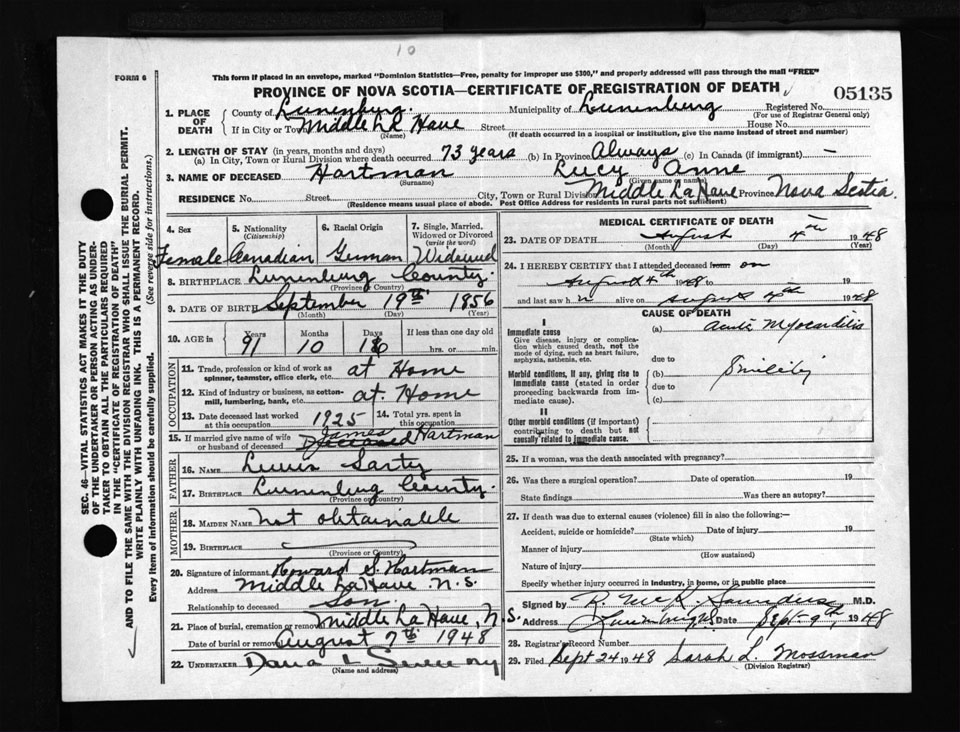 10
FORM 6
This form if placed in an envelope, marked "Dominion Statistics—Free, penalty for improper use $300," and properly addressed will pass through the mail "FREE"
PROVINCE OF NOVA SCOTIA—CERTIFICATE OF REGISTRATION OF DEATH
05135
1. PLACE OF DEATH
County of Lunenburg. Municipality of Lunenburg Registered No.
(For use of Registrar General only)
If in City or Town Middle La Have Street House No.
(Name) (If death occurred in a hospital or institution, give the name instead of street and number)
2. LENGTH OF STAY (in years, months and days)
(a) In City, Town or Rural Division where death occurred 73 years (b) In Province Always (c) In Canada (if immigrant) —
3. NAME OF DECEASED Hartman Lucy Anne
(Surname) (Given name or names)
RESIDENCE No. Street City, Town or Rural Division Middle LaHave Province Nova Scotia
(Residence means usual place of abode. Post Office Address for residents in rural parts not sufficient)
SEC. 46—VITAL STATISTICS ACT MAKES IT THE DUTY
OF THE UNDERTAKER OR PERSON ACTING AS UNDER-
TAKER TO OBTAIN ALL THE PARTICULARS REQUIRED
IN THE "CERTIFICATE OF REGISTRATION OF DEATH"
AND TO FILE THE SAME WITH THE DIVISION REGISTRAR WHO SHALL ISSUE THE BURIAL PERMIT.
WRITE PLAINLY WITH UNFADING INK. THIS IS A PERMANENT RECORD.
Every item of information should be carefully supplied. (See reverse side for instructions.)
4. Sex 5. Nationality 6. Racial Origin 7. Single, Married,
(Citizenship) Widowed or Divorced
(write the word)
Female Canadian German Widowed
8. BIRTHPLACE Lunenburg County.
(Province or Country)
9. DATE OF BIRTH September 19th 1856
(Month) (Day) (Year)
10. AGE in Years Months Days If less than one day old
91 10 16 hrs. or min.
OCCUPATION
11. Trade, profession or kind of work as
spinner, teamster, office clerk, etc. at Home
12. Kind of industry or business, as cotton-
mill, lumbering, bank, etc. at Home
13. Date deceased last worked
at this occupation 1925
14. Total yrs. spent in
this occupation
15. If married give name of wife
or husband of deceased James Hartman
FATHER
16. NAME Lewis Sarty
17. BIRTHPLACE Lunenburg County.
(Province or Country)
MOTHER
18. MAIDEN NAME not obtainable
19. BIRTHPLACE
(Province or Country)
20. Signature of informant Howard S. Hartman
Address Middle LaHave N.S.
Relationship to deceased Son
21. Place of burial, cremation or removal Middle LaHave, N.S.
Date of burial or removal August 7th 1948
22. UNDERTAKER Dana L Sweeny
(Name and address)
MEDICAL CERTIFICATE OF DEATH
23. DATE OF DEATH August 4th 1948
(Month) (Day) (Year)
24. I HEREBY CERTIFY that I attended deceased from on
August 4th 1948 to 19
and last saw h alive on August 4th 1948
CAUSE OF DEATH
I
Immediate cause
Give disease, injury or complica-
tion which caused death, not the
mode of dying, such as heart failure,
asphyxia, asthenia, etc.
(a) acute Myocarditis
due to
Morbid conditions, if any, giving rise to
immediate cause (stated in order
proceeding backwards from im-
mediate cause).
(b) Senility
due to
(c)
II
Other morbid conditions (if important)
contributing to death but not
causally related to immediate cause.
25. If a woman, was the death associated with pregnancy?
26. Was there a surgical operation? Date of operation 19
State findings Was there an autopsy?
27. If death was due to external causes (violence) fill in also the following:—
Accident, suicide or homicide? Date of injury 19
(State which)
Manner of injury
(How sustained)
Nature of injury
Specify whether injury occurred in industry, in home, or in public place
Signed by R. McK. Saunders M.D.
Address Date Sept. 9th, 1948
28. Registrar's Record Number
29. Filed Sept 24 1948 Sarah L. Mossman
(Division Registrar)